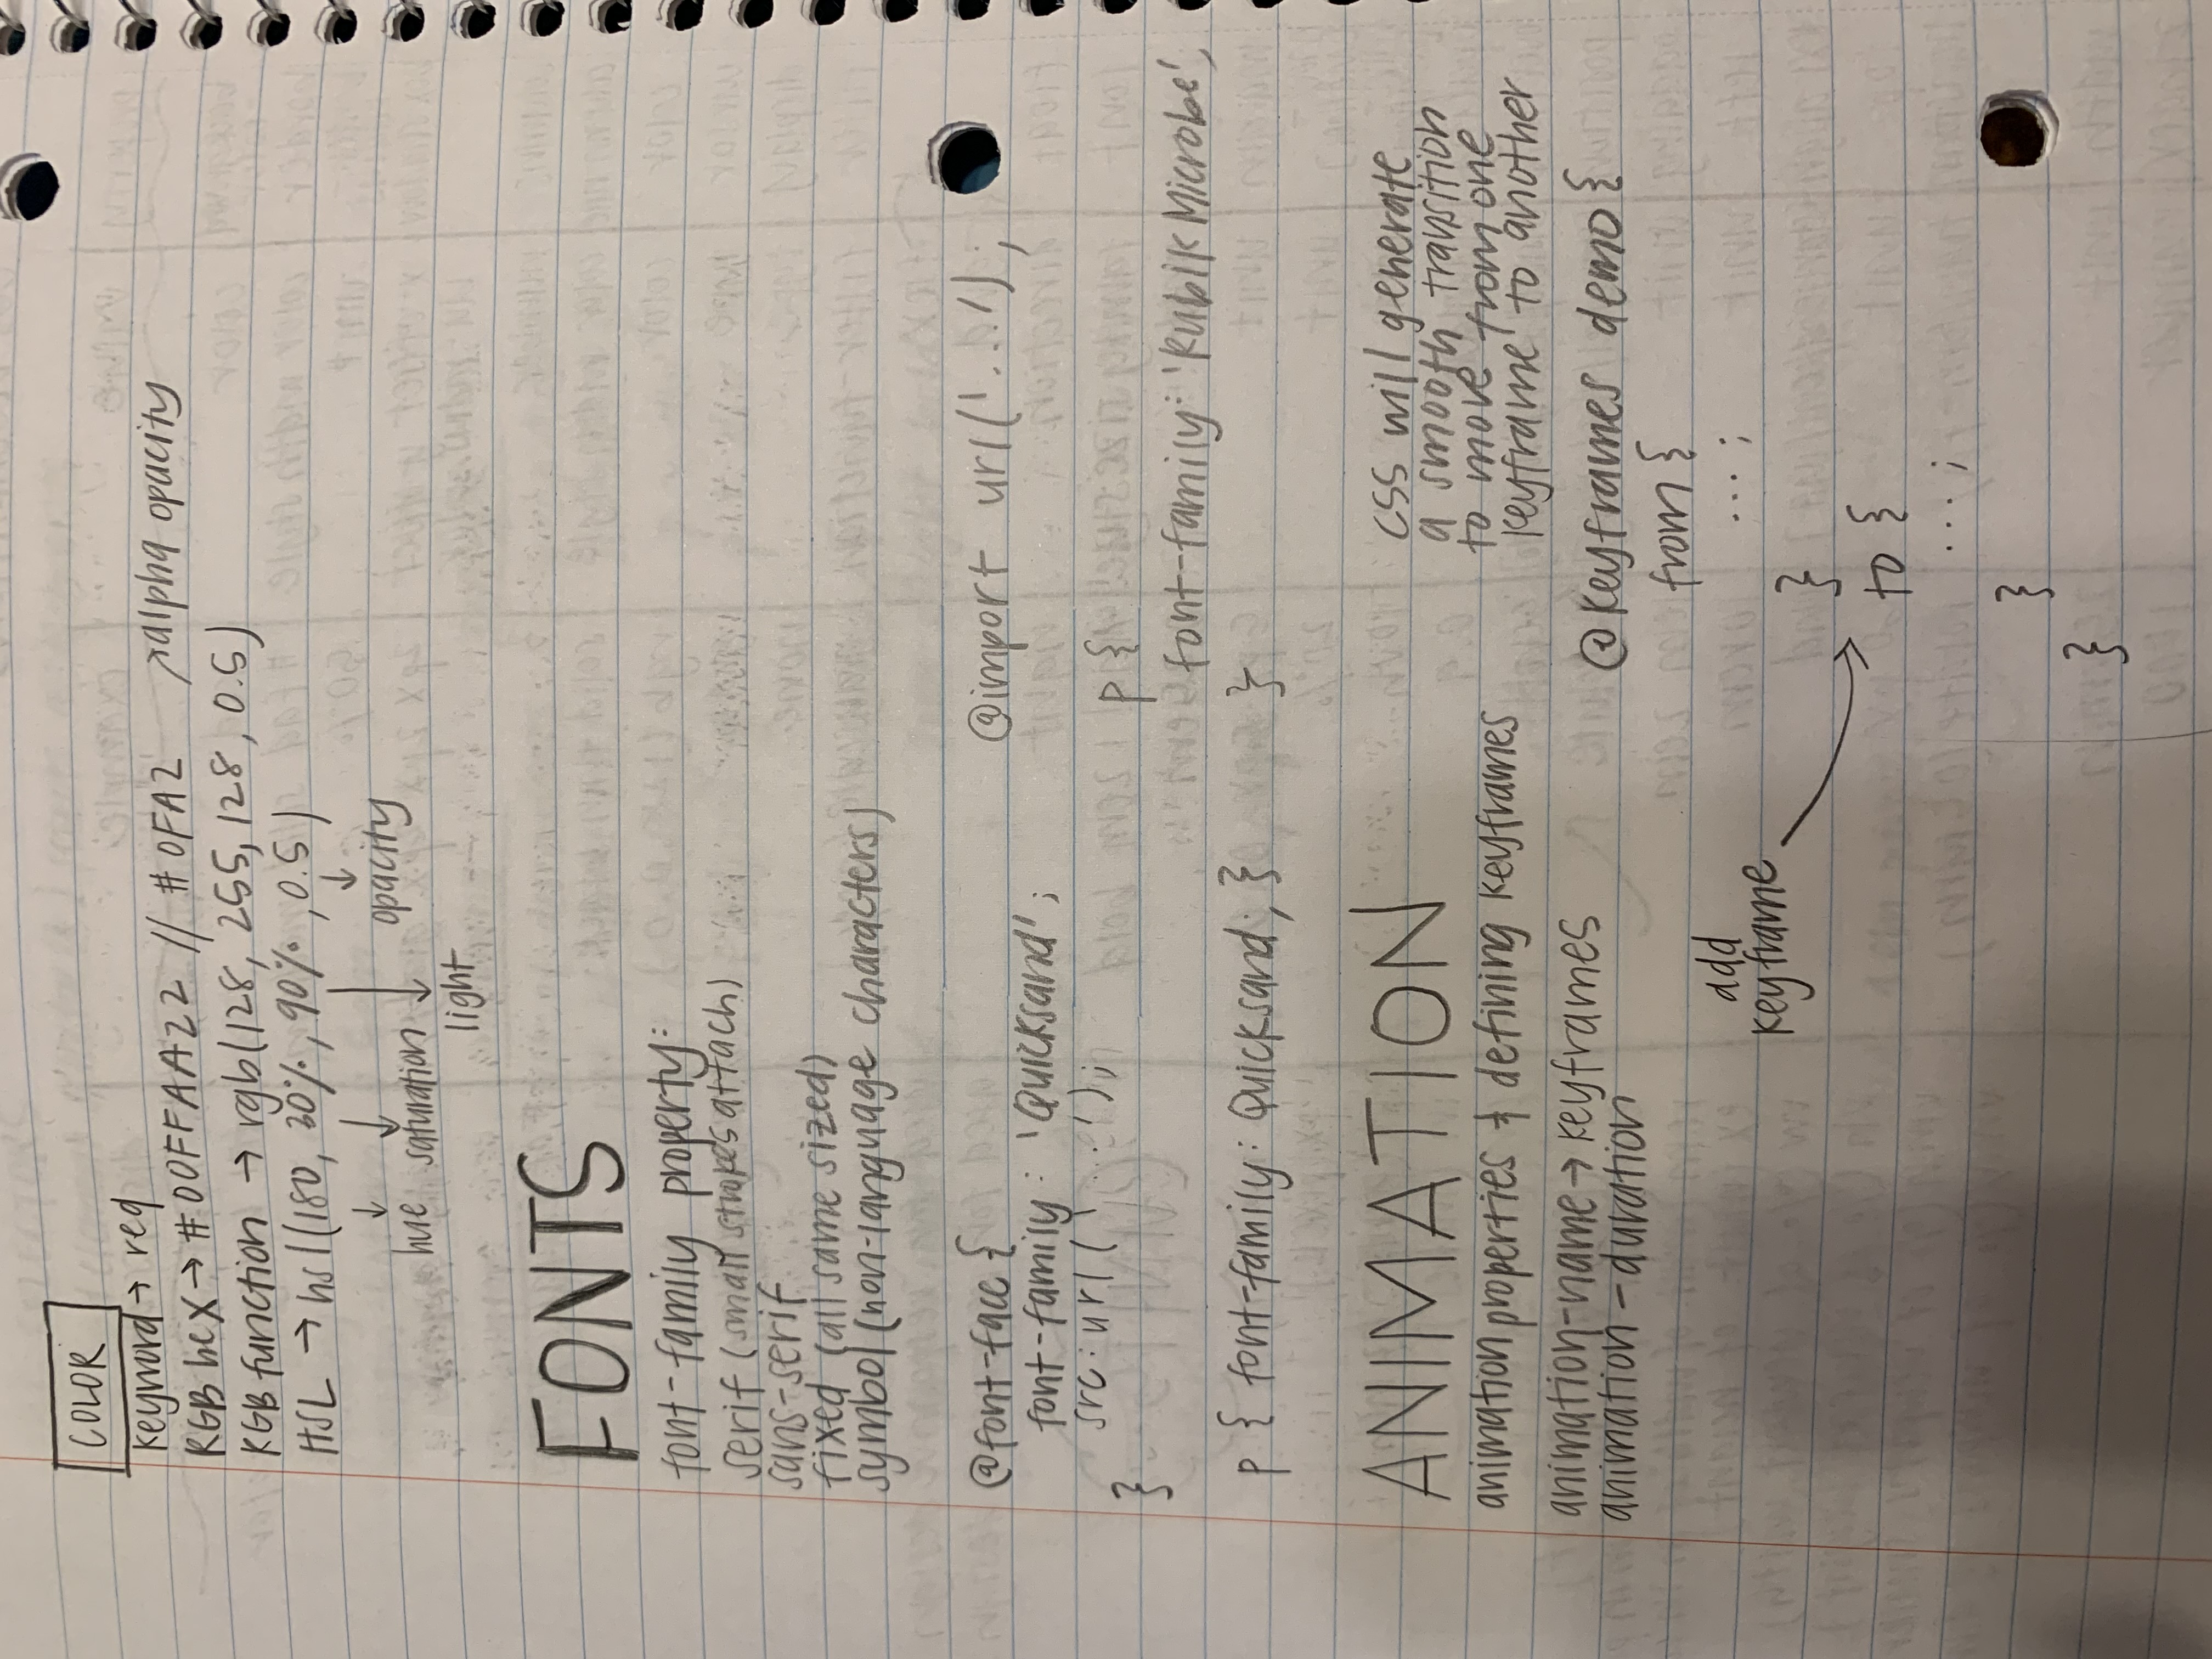 COLOR
keyword → red
RGB hex → #00FFAA22 // #0FA2
↗alpha opacity
RGB function → rgb(128, 255, 128, 0.5)
HSL → hsl(180, 30%, 90%, 0.5)
↓ ↓ ↓ ↓
hue saturation light opacity
FONTS
font-family property:
serif (small strokes attach)
sans-serif
fixed (all same sized)
symbol (non-language characters)
@font-face {
font-family: 'Quicksand';
src: url('...');
}
p { font-family: Quicksand; }
@import url('...');
p {
font-family: 'Rubik Microbe';
}
ANIMATION
animation properties & defining keyframes
animation-name → keyframes
animation-duration
CSS will generate
a smooth transition
to move from one
keyframe to another
add
keyframe
@keyframes demo {
from {
...;
}
to {
...;
}
}